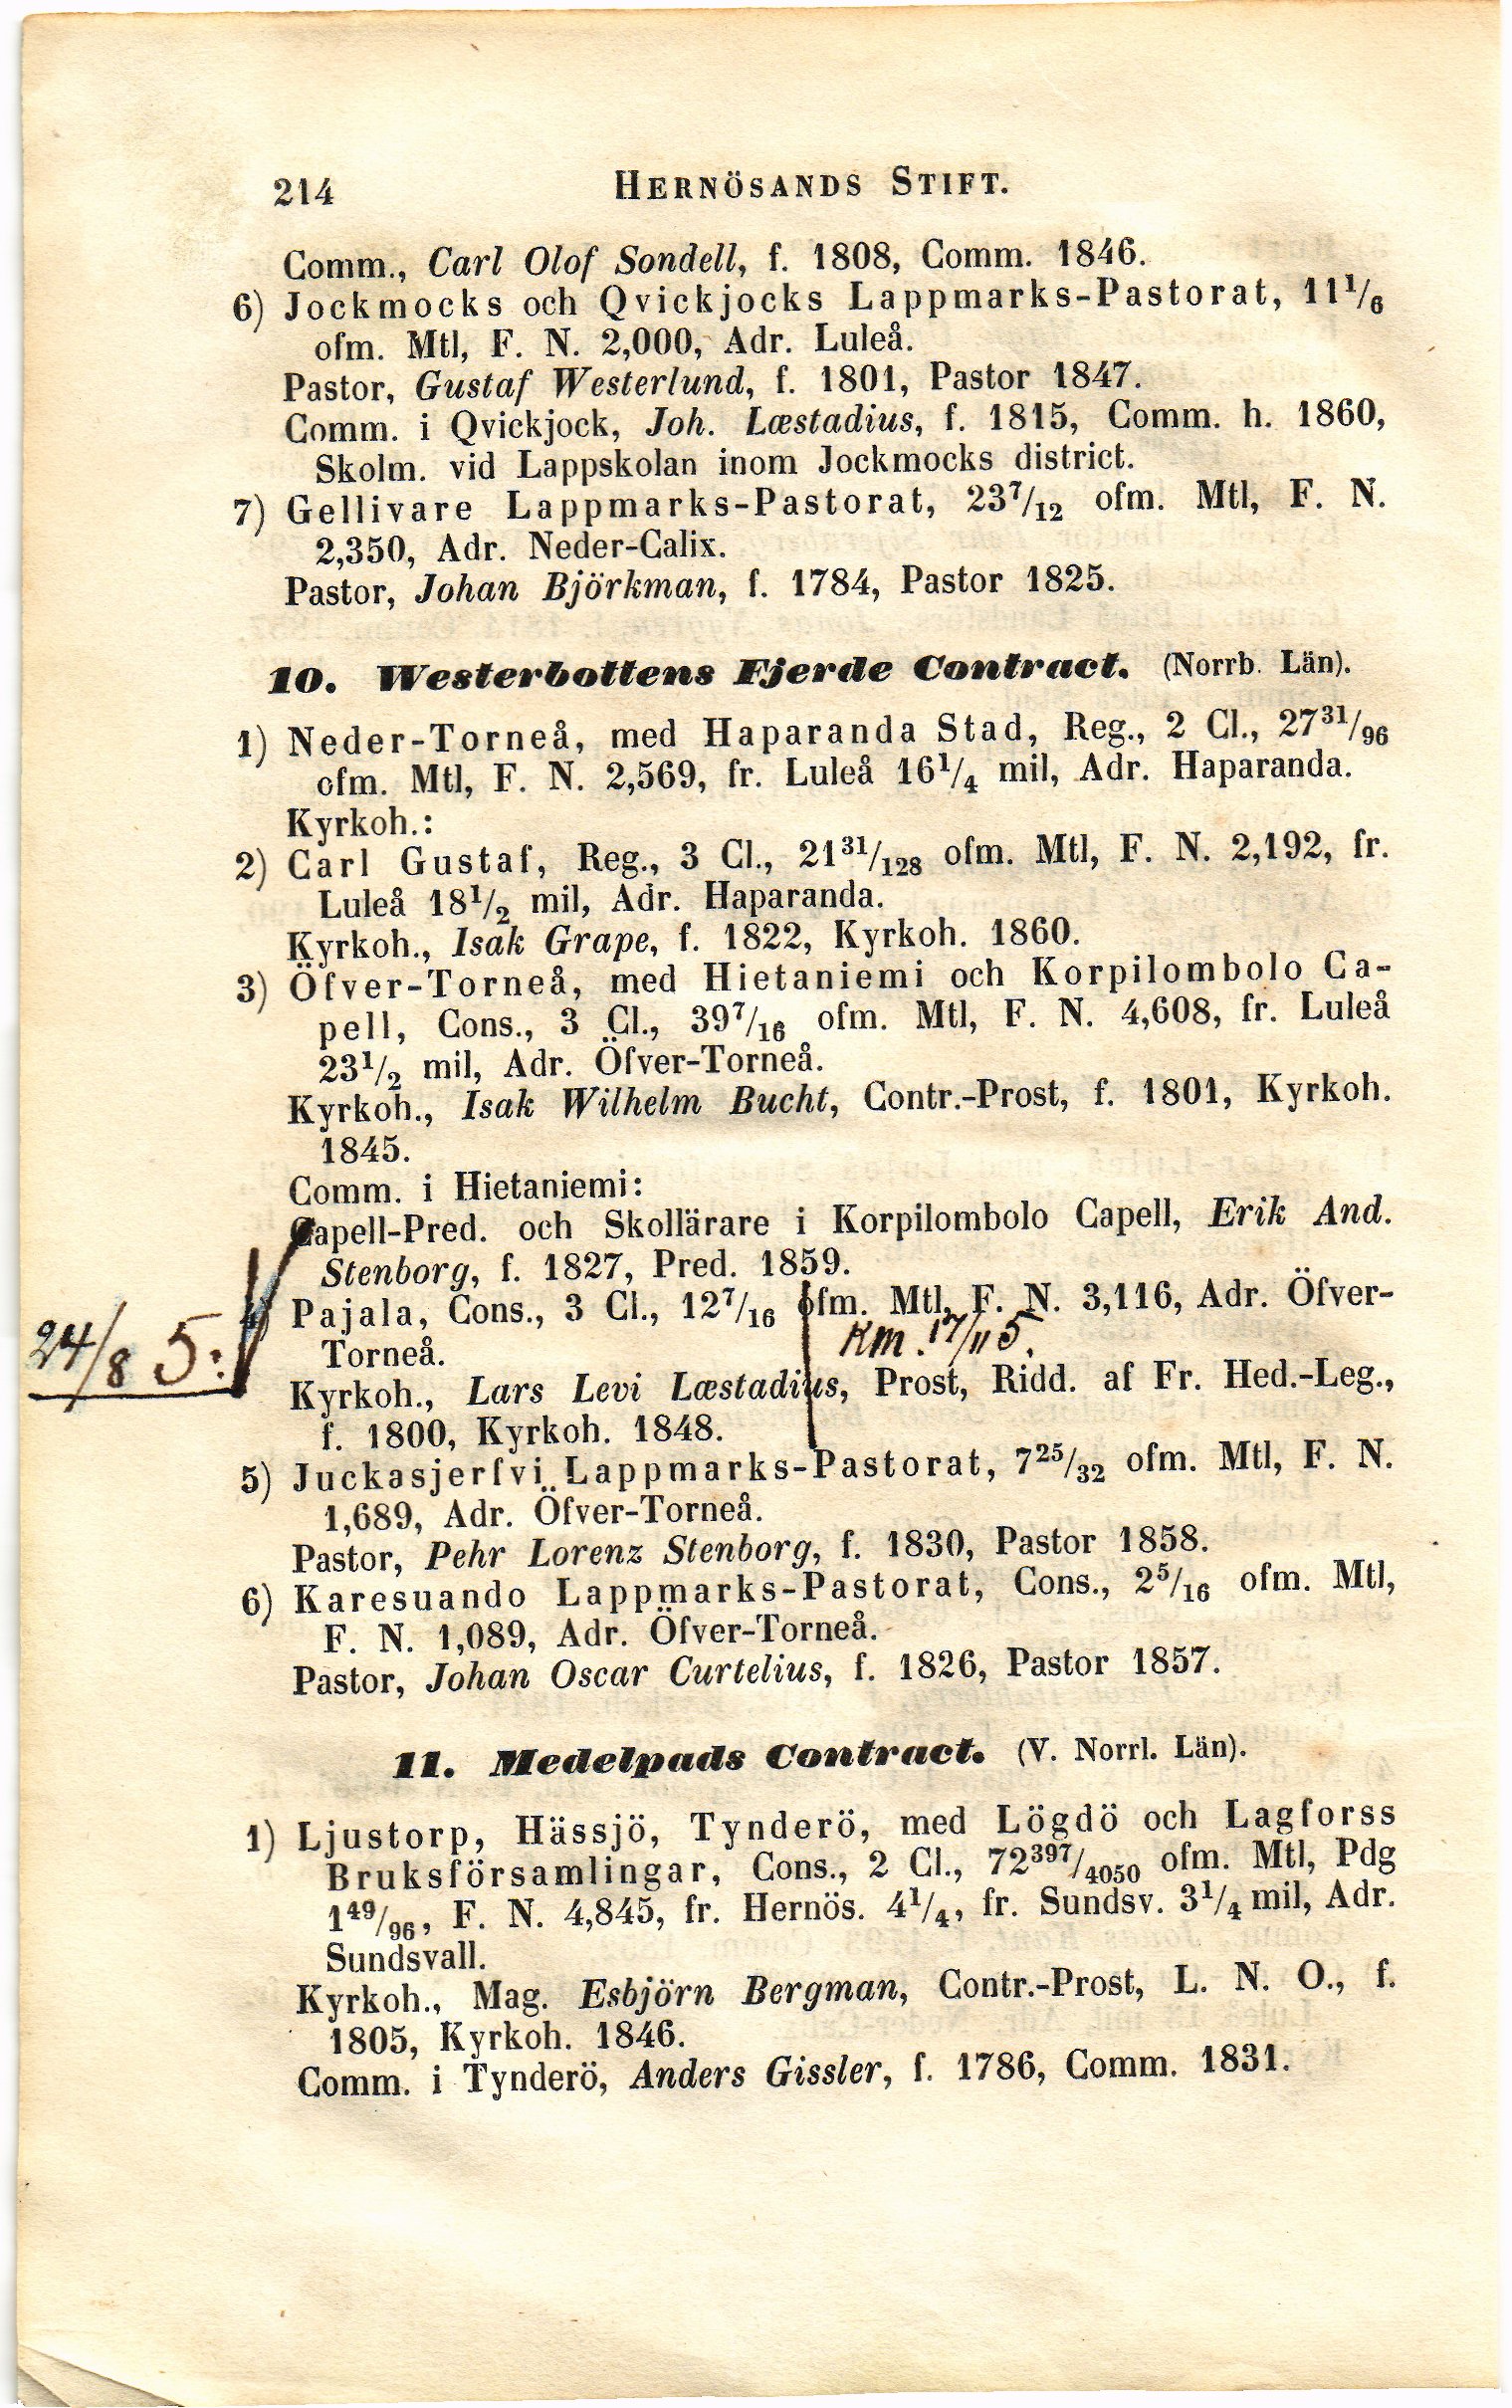 214 HERNÖSANDS STIFT.
Comm., Carl Olof Sondell, f. 1808, Comm. 1846.
6) Jockmocks och Qvickjocks Lappmarks-Pastorat, 11¹/₆
ofm. Mtl, F. N. 2,000, Adr. Luleå.
Pastor, Gustaf Westerlund, f. 1801, Pastor 1847.
Comm. i Qvickjock, Joh. Læstadius, f. 1815, Comm. h. 1860,
Skolm. vid Lappskolan inom Jockmocks district.
7) Gellivare Lappmarks-Pastorat, 23⁷/₁₂ ofm. Mtl, F. N.
2,350, Adr. Neder-Calix.
Pastor, Johan Björkman, f. 1784, Pastor 1825.
10. Westerbottens Fjerde Contract. (Norrb. Län).
1) Neder-Torneå, med Haparanda Stad, Reg., 2 Cl., 27³¹/₉₆
ofm. Mtl, F. N. 2,569, fr. Luleå 16¹/₄ mil, Adr. Haparanda.
Kyrkoh.:
2) Carl Gustaf, Reg., 3 Cl., 21³¹/₁₂₈ ofm. Mtl, F. N. 2,192, fr.
Luleå 18¹/₂ mil, Adr. Haparanda.
Kyrkoh., Isak Grape, f. 1822, Kyrkoh. 1860.
3) Öfver-Torneå, med Hietaniemi och Korpilombolo Ca-
pell, Cons., 3 Cl., 39⁷/₁₆ ofm. Mtl, F. N. 4,608, fr. Luleå
23¹/₂ mil, Adr. Öfver-Torneå.
Kyrkoh., Isak Wilhelm Bucht, Contr.-Prost, f. 1801, Kyrkoh.
1845.
Comm. i Hietaniemi:
Capell-Pred. och Skollärare i Korpilombolo Capell, Erik And.
Stenborg, f. 1827, Pred. 1859.
4) Pajala, Cons., 3 Cl., 12⁷/₁₆ ofm. Mtl, F. N. 3,116, Adr. Öfver-
24/8 5:
Torneå. Km. 17/11 5.
Kyrkoh., Lars Levi Læstadius, Prost, Ridd. af Fr. Hed.-Leg.,
f. 1800, Kyrkoh. 1848.
5) Juckasjerfvi Lappmarks-Pastorat, 7²⁵/₃₂ ofm. Mtl, F. N.
1,689, Adr. Öfver-Torneå.
Pastor, Pehr Lorenz Stenborg, f. 1830, Pastor 1858.
6) Karesuando Lappmarks-Pastorat, Cons., 2⁵/₁₆ ofm. Mtl,
F. N. 1,089, Adr. Öfver-Torneå.
Pastor, Johan Oscar Curtelius, f. 1826, Pastor 1857.
11. Medelpads Contract. (V. Norrl. Län).
1) Ljustorp, Hässjö, Tynderö, med Lögdö och Lagforss
Bruksförsamlingar, Cons., 2 Cl., 72³⁹⁷/₄₀₅₀ ofm. Mtl, Pdg
1⁴⁹/₉₆, F. N. 4,845, fr. Hernös. 4¹/₄, fr. Sundsv. 3¹/₄ mil, Adr.
Sundsvall.
Kyrkoh., Mag. Esbjörn Bergman, Contr.-Prost, L. N. O., f.
1805, Kyrkoh. 1846.
Comm. i Tynderö, Anders Gissler, f. 1786, Comm. 1831.